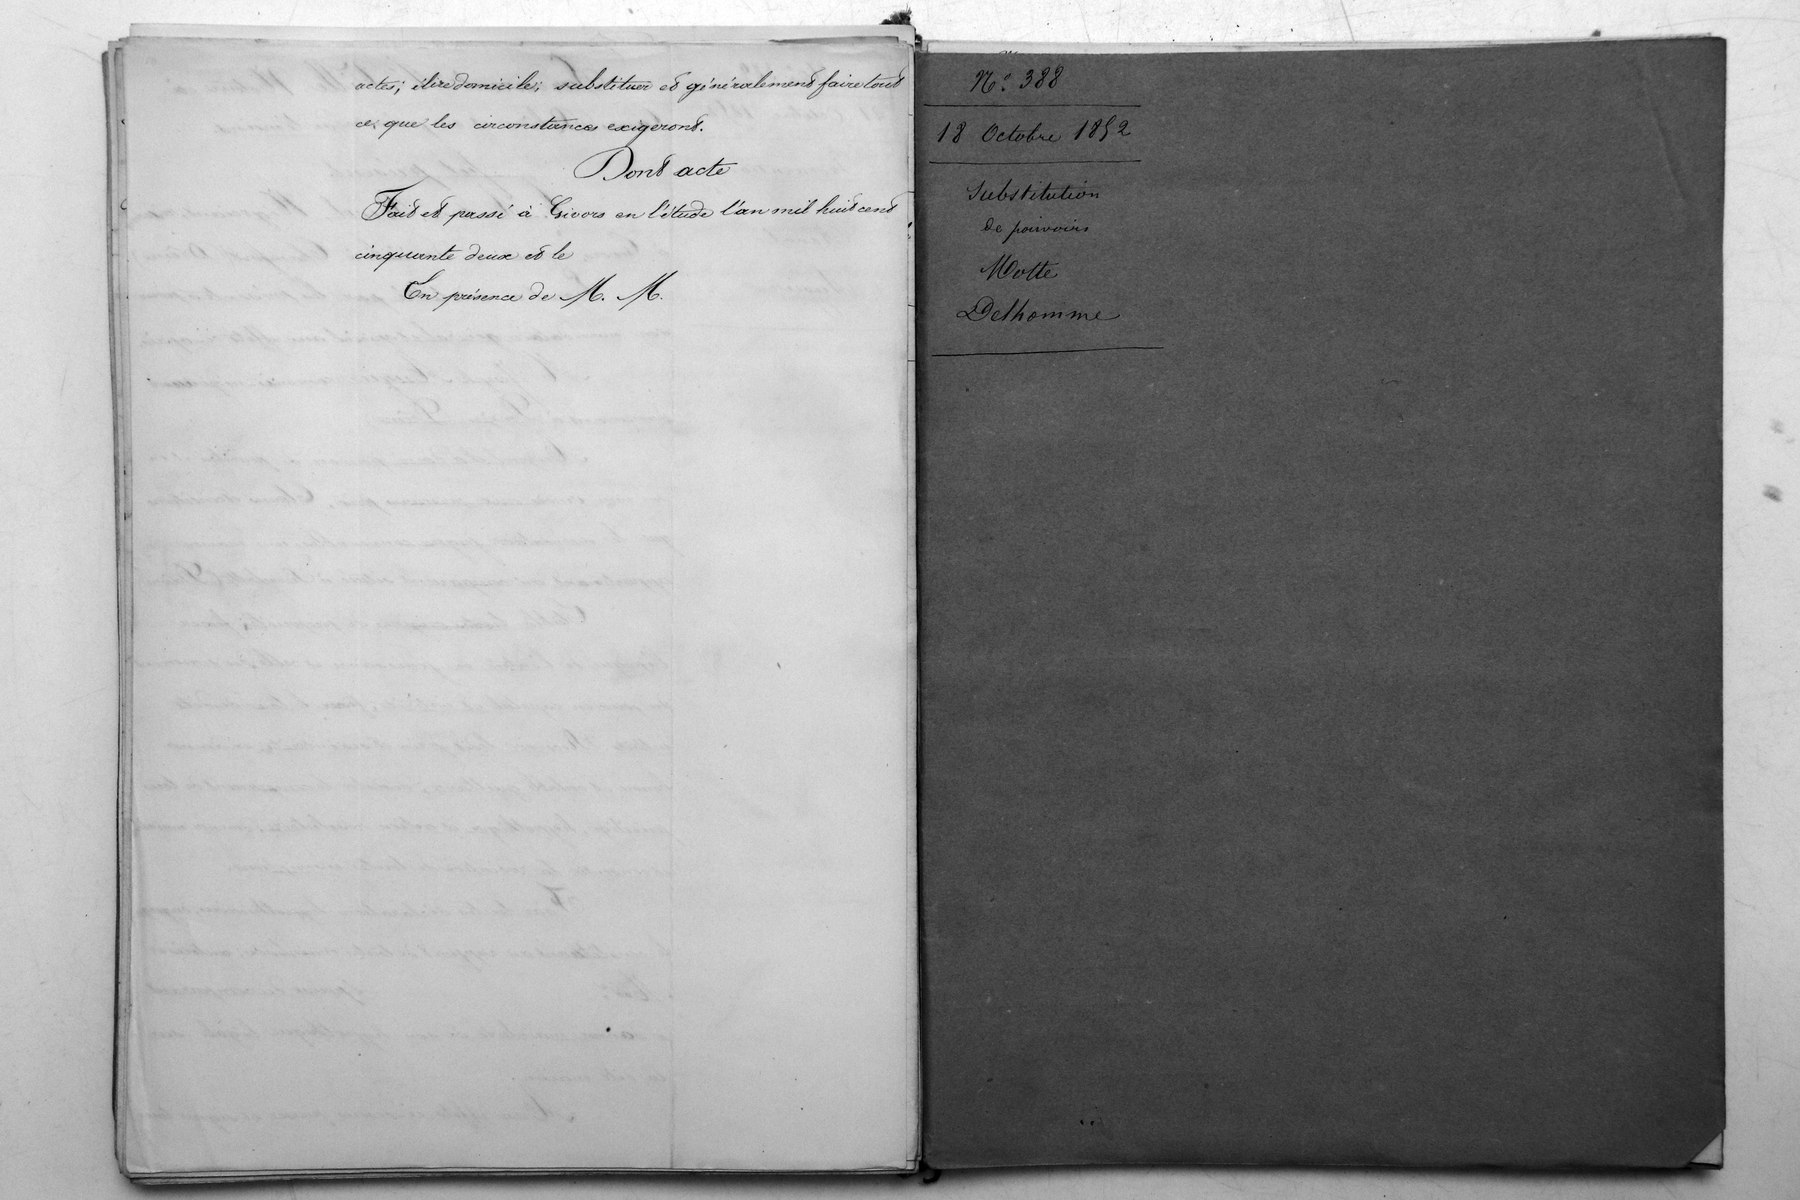 actes; élire domicile; substituer et généralement faire tout
ce que les circonstances exigeront.
Dont acte
Fait et passé à Givors en l'étude l'an mil huit cent
cinquante deux et le
En présence de M. M.
N.º 388
18 Octobre 1852
Substitution
de pouvoirs
Motte
Delhomme